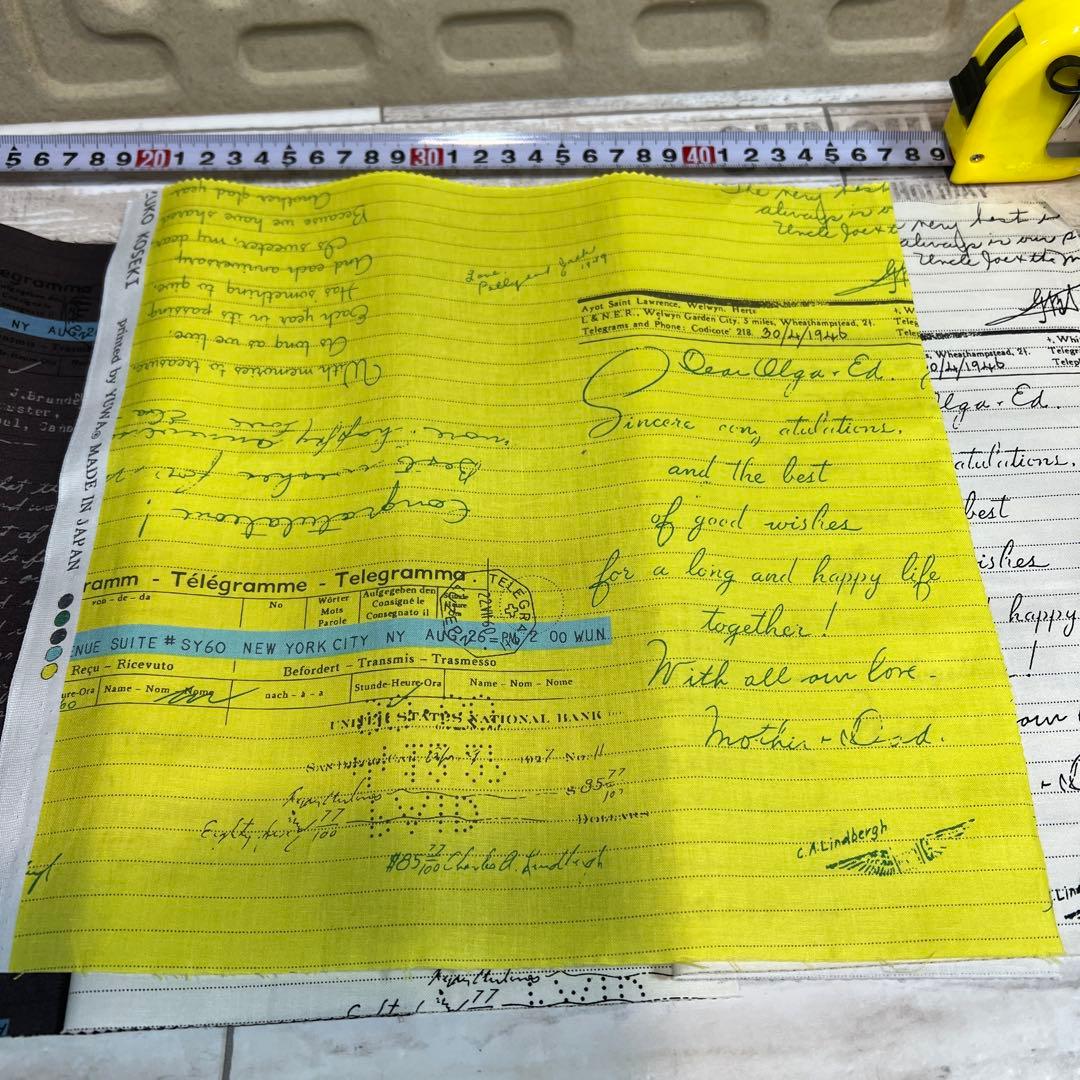 5 6 7 8 9 20 1 2 3 4 5 6 7 8 9 30 1 2 3 4 5 6 7 8 9 40 1 2 3 4 5 6 7 8 9
UKO KOSEKI printed by YUWA® MADE IN JAPAN
The very best
always in o
Uncle Joe & t
Ayot Saint Lawrence, Welwyn, Herts
L & N.E.R., Welwyn Garden City, 5 miles, Wheathampstead, 2¼.
Telegrams and Phone: Codicote 218. 30/4/1946
Dear Olga & Ed.
Sincere con atulations,
and the best
of good wishes
for a long and happy life
together!
With all our love -
Mother & Dad.
C.A.Lindbergh
Another glad year
Because we have shared
Is sweeter, my dear,
And each anniversary
Has something to give
Each year in its passing
As long as we live.
With memories to treasure
"more" happy
Best wishes for
Congratulations!
ramm - Télégramme - Telegramma
von - de - da
No
Wörter
Mots
Parole
Aufgegeben den
Consigné le
Consegnato il
TELEGR
22.VIII.60
ENUE SUITE # SY60 NEW YORK CITY NY AUG 26 = PM 2 00 WUN.
Reçu - Ricevuto
Befördert - Transmis - Trasmesso
ure-Ora
Name - Nom - Nome
nach - à - a
Stunde-Heure-Ora
Name - Nom - Nome
UNITED STATES NATIONAL BANK
1927 No. 11
$ 85 77/100
Eighty five & 77/100 DOLLARS
#85 77/100 Charles A. Lindbergh
egramma
NY AUG 2
J.Brunde
very best
always in our
Uncle Joe & the
Wheathampstead, 2¼.
0/4/1946
lga & Ed.
atulations,
best
ishes
happy
our
Lin
77